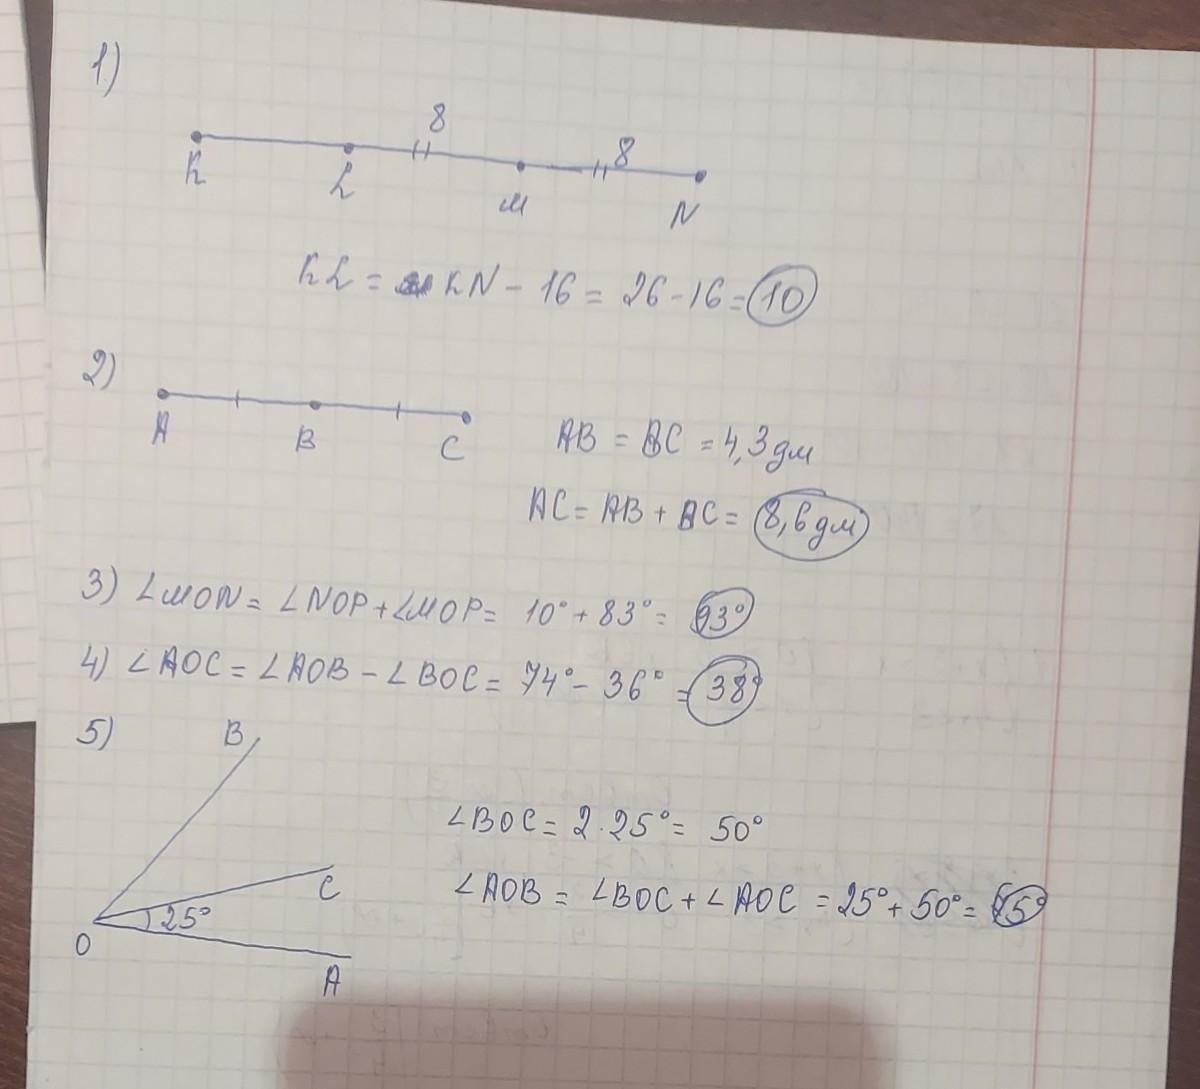 1)
8
8
K L M N
KL = KN - 16 = 26 - 16 = 10
2)
A B C
AB = BC = 4,3 дм
AC = AB + BC = 8,6 дм
3) ∠MON = ∠NOP + ∠MOP = 10° + 83° = 93°
4) ∠AOC = ∠AOB - ∠BOC = 74° - 36° = 38°
5)
B
C
25°
O
A
∠BOC = 2 · 25° = 50°
∠AOB = ∠BOC + ∠AOC = 25° + 50° = 75°